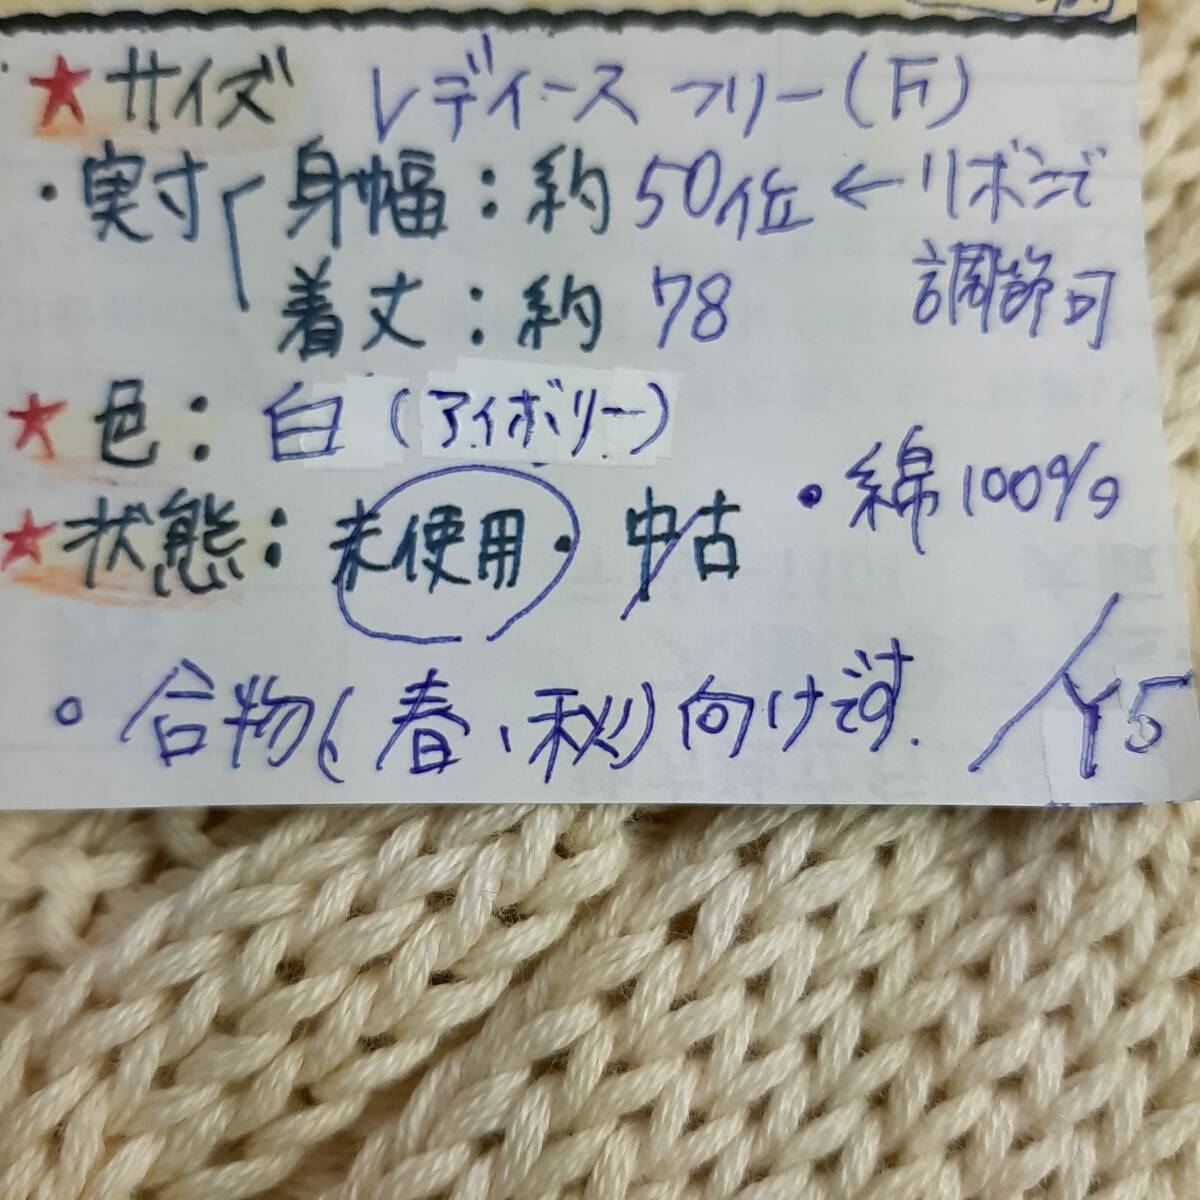 ★サイズ レディース フリー(F)
・実寸「身幅:約50位←リボンで
調節可
着丈:約78
★色:白(アイボリー)
・綿100%
★状態:未使用・中古
・合物(春、秋)向けです.
Y5